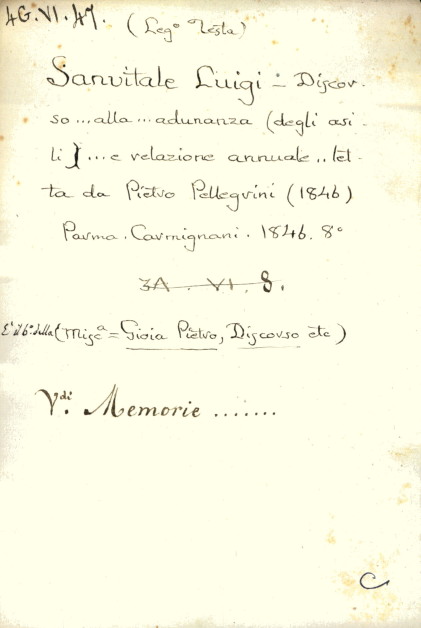 4G.VI.47.
(Leg° Testa)
Sanvitale Luigi = Discor-
so ... alla ... adunanza (degli asi-
li) ... e relazione annuale .. let-
ta da Pietro Pellegrini (1846)
Parma. Carmignani. 1846. 8°
3A. VI. 8.
E' il 6° della (Misc.ª = Gioia Pietro, Discorso etc)
V.di Memorie .......
C